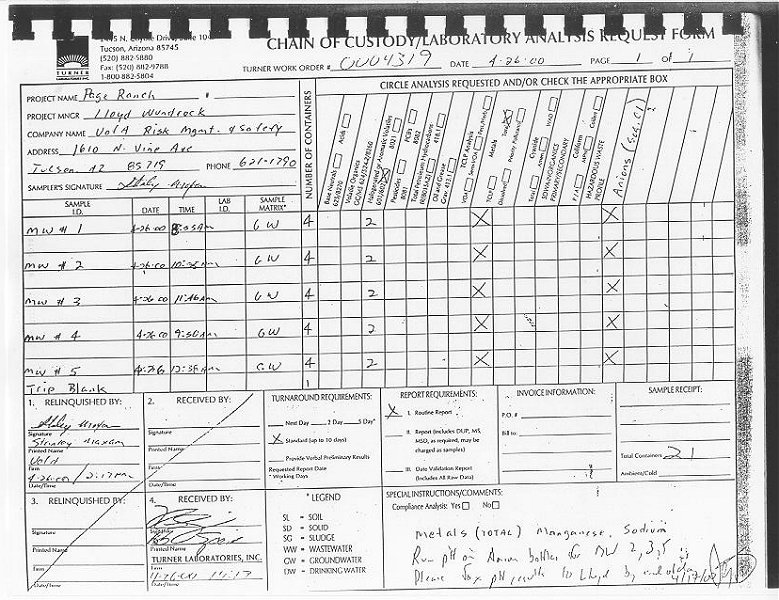 Tucson, Arizona 85745
(520) 882-5880
Fax: (520) 882-9788
1-800-882-5804
TURNER
LABORATORIES, INC.
CHAIN OF CUSTODY/LABORATORY ANALYSIS REQUEST FORM
TURNER WORK ORDER # 0004319 DATE 4-26-00 PAGE 1 of 1
PROJECT NAME Page Ranch #
PROJECT MNGR Lloyd Wundrock
COMPANY NAME UofA Risk Mgmt. & Safety
ADDRESS 1610 N. Vine Ave
Tucson AZ 85719 PHONE 621-1790
SAMPLER'S SIGNATURE
CIRCLE ANALYSIS REQUESTED AND/OR CHECK THE APPROPRIATE BOX
NUMBER OF CONTAINERS
Base Neutrals Acids
625/8270
Volatile Organics
Halogenated or Aromatic Volatiles
Pesticides PCB's
8081 8082
Total Petroleum Hydrocarbons
Oil and Grease
TCLP Analysis
VOA SemiVOA Pest/Herb
TCLP Metals Total
Dissolved Priority Pollutants
Cyanide
Total
SDWA INORGANICS
PRIMARY/SECONDARY
Coliform
P/A MPN Colilert
HAZARDOUS WASTE
PROFILE
Anions (SO4, Cl)
SAMPLE I.D. DATE TIME LAB I.D. SAMPLE MATRIX*
MW # 1 4-26-00 GW 4 2 X X
MW # 2 4-26-00 GW 4 2 X X
MW # 3 4-26-00 11:46am GW 4 2 X X
MW # 4 4-26-00 9:50am GW 4 2 X X
MW # 5 GW 4 2 X X
Trip Blank 1
1. RELINQUISHED BY:
Signature
Printed Name
UofA
Firm
4-26-00 / 2:17pm
Date/Time
2. RECEIVED BY:
Signature
Printed Name
Firm
Date/Time
TURNAROUND REQUIREMENTS:
Next Day 2 Day 5 Day*
X Standard (up to 10 days)
Provide Verbal Preliminary Results
Requested Report Date
* Working Days
REPORT REQUIREMENTS:
X I. Routine Report
II. Report (includes DUP, MS,
MSD, as required, may be
charged as samples)
III. Date Validation Report
(Includes All Raw Data)
INVOICE INFORMATION:
P.O. #
Bill to:
SAMPLE RECEIPT:
Total Containers 21
Ambient/Cold
3. RELINQUISHED BY:
Signature
Printed Name
Firm
Date/Time
4. RECEIVED BY:
Signature
Printed Name
TURNER LABORATORIES, INC.
Firm
4-26-00 14:17
Date/Time
* LEGEND
SL = SOIL
SD = SOLID
SG = SLUDGE
WW = WASTEWATER
GW = GROUNDWATER
DW = DRINKING WATER
SPECIAL INSTRUCTIONS/COMMENTS:
Compliance Analysis: Yes No
Metals (TOTAL) Manganese, Sodium
Run pH on Anion bottles for MW 2, 3, 5
Please fax pH results to Lloyd by end of day